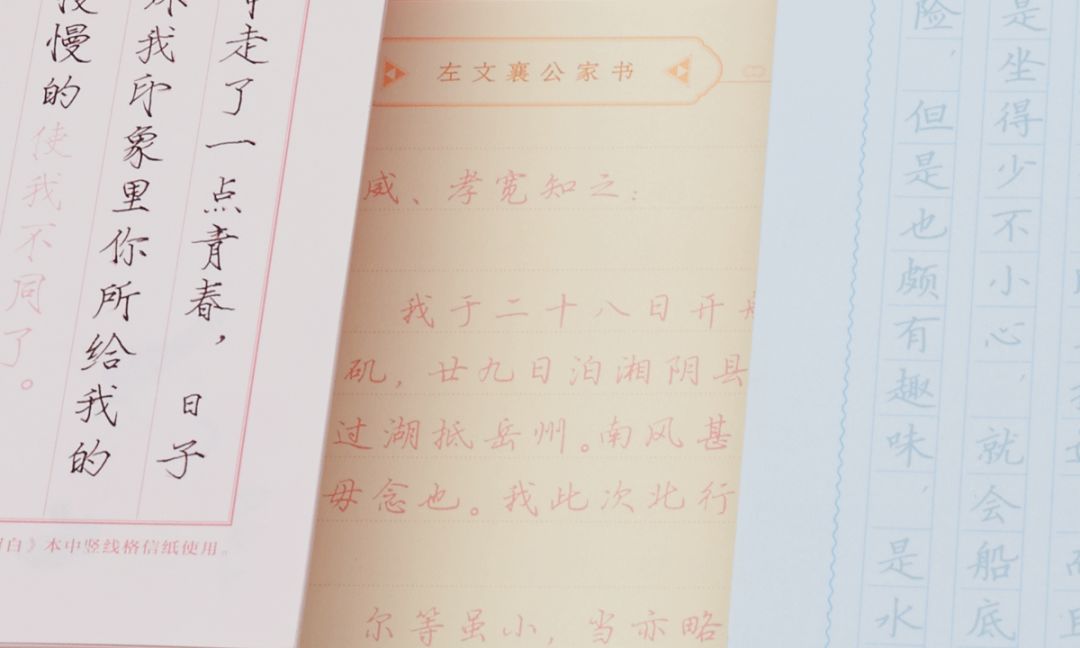 走了一点青春，日子
我印象里你所给我的
慢的使我不同了。
白》本中竖线格信纸使用。
左文襄公家书
威、孝宽知之：
我于二十八日开
矶，廿九日泊湘阴县
过湖抵岳州。南风甚
毋念也。我此次北行
尔等虽小，当亦略
是坐得少不小心，就会船底
险，但是也颇有趣味，是水